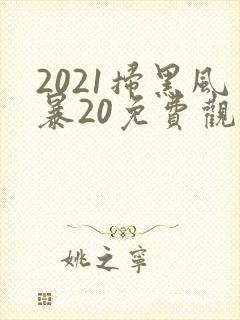 2021掃黑風
暴20免費觀
姚之寧